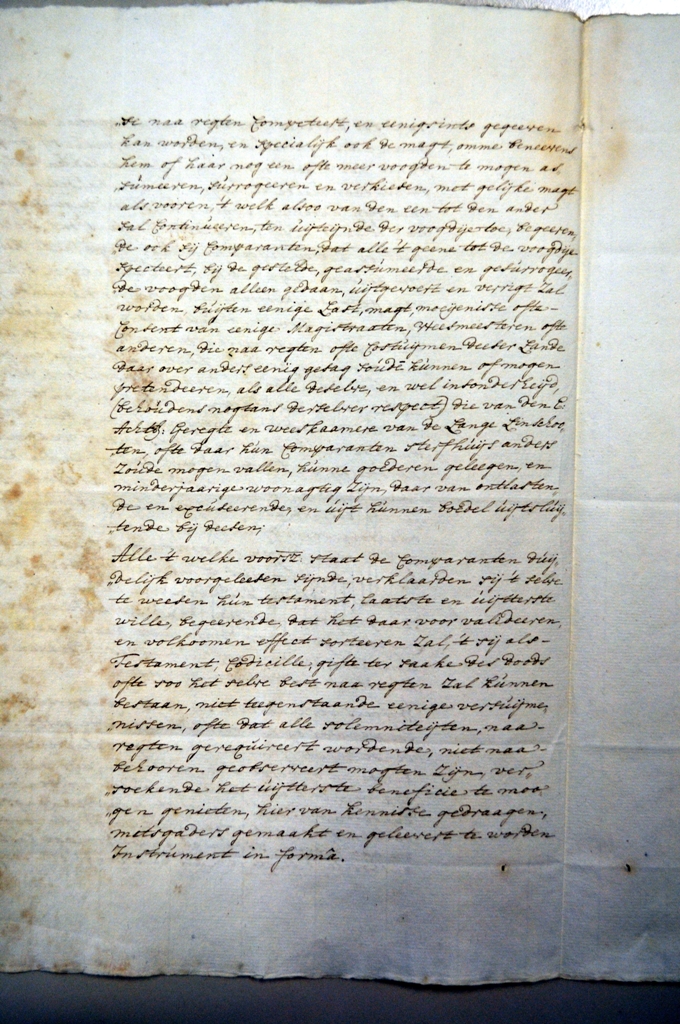 „de naa regten Competeert, en eenigsints gegeeven
kan worden, en specialijk ook de magt, omme beneevens
hem of haar nog een ofte meer voogden te mogen as„
„sumeeren, surrogeeren en verkiesen, met gelijke magt
als vooren, 't welk alsoo van den een tot den ander
sal Continueeren, ten uijteijnde der voogdije toe, begeeren„
„de ook sij Comparanten, dat alle 't geene tot de voogdije
specteert, bij de gestelde, geassumeerde en gesurrogeer„
„de voogden alleen gedaan, uijtgevoert en verrigt Zal
worden, buijten eenige Last, magt, moeijenisse ofte
Consent van eenige Magistraaten, Weesmeesteren ofte
anderen, die naa regten ofte Costuijmen deeser Lande
daar over anders eenig gesag soude kunnen of mogen
pretendeeren, als alle deselve, en wel insonderheijd,
(behoudens nogtans derselver respect) die van den E:
Agtb: Geregte en weeskaamere van de Lange Linschoo„
„ten, ofte daar hun Comparanten sterfhuijs anders
Zoude mogen vallen, hunne goederen geleegen, en
minderjaarige woonagtig Zijn, daar van ontlasten„
„de en excuseerende, en uijt hunnen boedel uijtsluij„
„tende bij deesen;
Alle 't welke voorsz: staat de Comparanten duij„
„delijk voorgeleesen sijnde, verklaarden sij 't selve
te weesen hun testament, laatste en uijtterste
wille, begeerende, dat het daar voor valideeren,
en volkoomen effect sorteeren Zal, 't sij als
Testament, Codicille, gifte ter saake des doods
ofte soo het selve best naa regten Zal kunnen
bestaan, niet teegenstaande eenige versuijme„
„nissen, ofte dat alle solemniteijten, naa
regten gerequireert wordende, niet naa
behooren geobserveert mogten Zijn, ver„
„soekende het uijtterste beneficie te moo„
„gen genieten, hier van kennisse gedraagen,
mitsgaders gemaakt en geleevert te worden
Instrument in formâ.